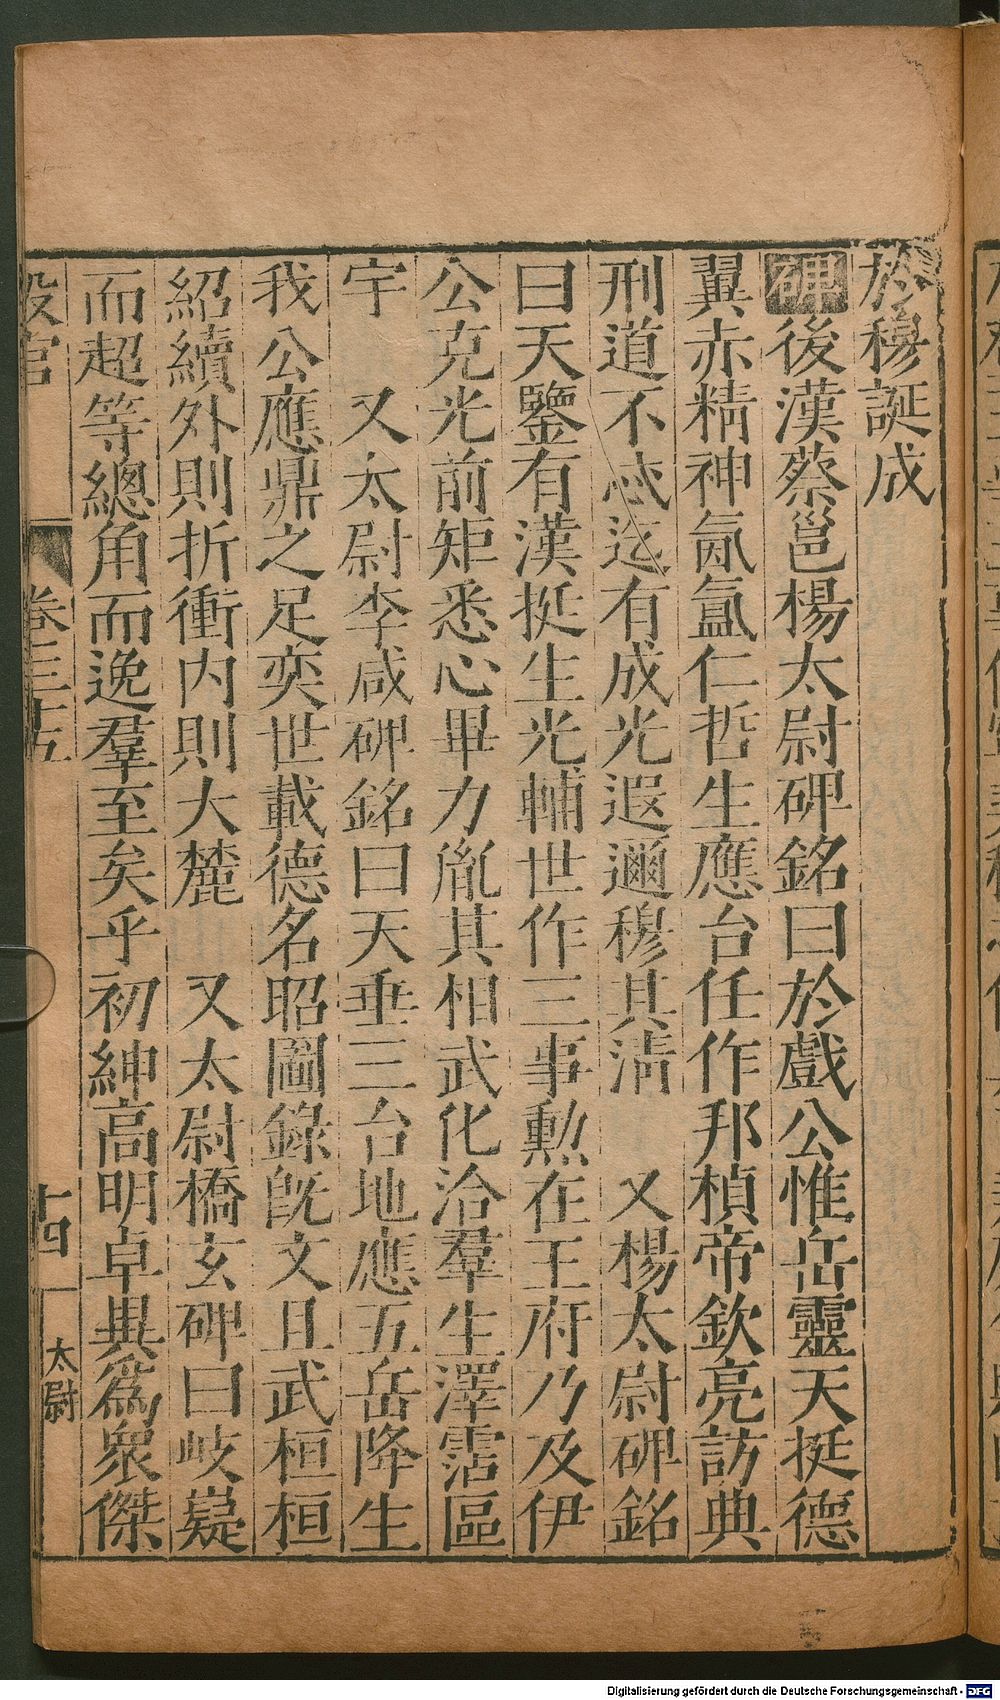 於穆誕成
碑後漢蔡邕楊太尉碑銘曰於戲公惟岳靈天挺德
翼赤精神氤氳仁哲生應台任作邦楨帝欽亮訪典
刑道不忒迄有成光遐邇穆其清　又楊太尉碑銘
曰天鑒有漢挺生光輔世作三事勲在王府乃及伊
公克光前矩悉心畢力胤其相武化洽羣生澤霑區
宇　又太尉李咸碑銘曰天垂三台地應五岳降生
我公應鼎之足奕世載德名昭圖錄旣文且武桓桓
紹續外則折衝内則大麓　又太尉橋玄碑曰岐嶷
而超等總角而逸羣至矣乎初紳高明卓異爲衆傑
設官　卷三十五　十四　太尉
Digitalisierung gefördert durch die Deutsche Forschungsgemeinschaft - DFG